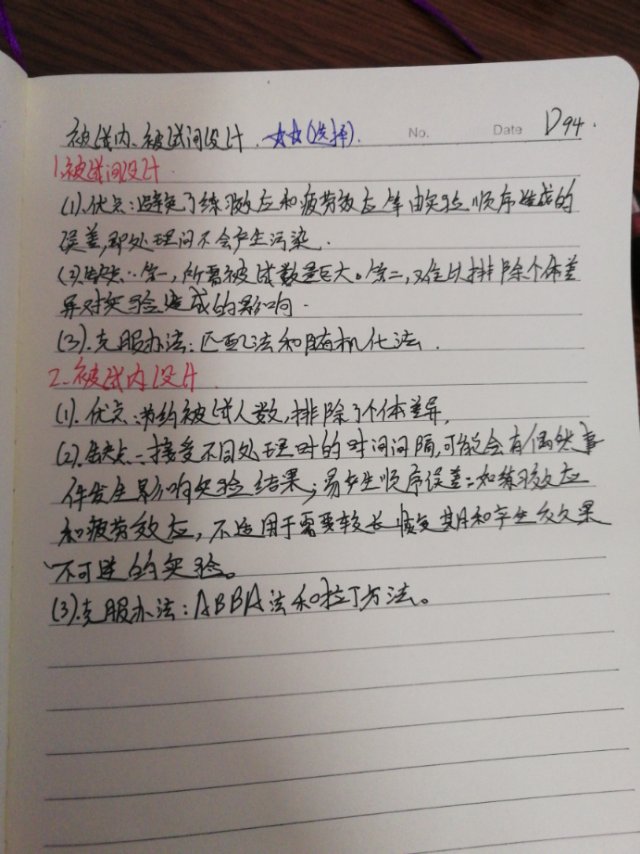 被试内、被试间设计. ☆☆(选择). No. Date D94.
1.被试间设计.
(1).优点:避免了练习效应和疲劳效应等由实验顺序造成的
误差,即处理间不会产生污染.
(2)缺点:第一,所需被试数量巨大。第二,难以排除个体差
异对实验造成的影响.
(3).克服办法:匹配法和随机化法.
2.被试内设计.
(1).优点:节约被试人数,排除了个体差异.
(2).缺点:接受不同处理时的时间间隔,可能会有偶然事
件发生影响实验结果;易产生顺序误差:如练习效应
和疲劳效应,不适用于需要较长恢复期和产生效果
不可逆的实验。
(3).克服办法:ABBA法和拉丁方法。